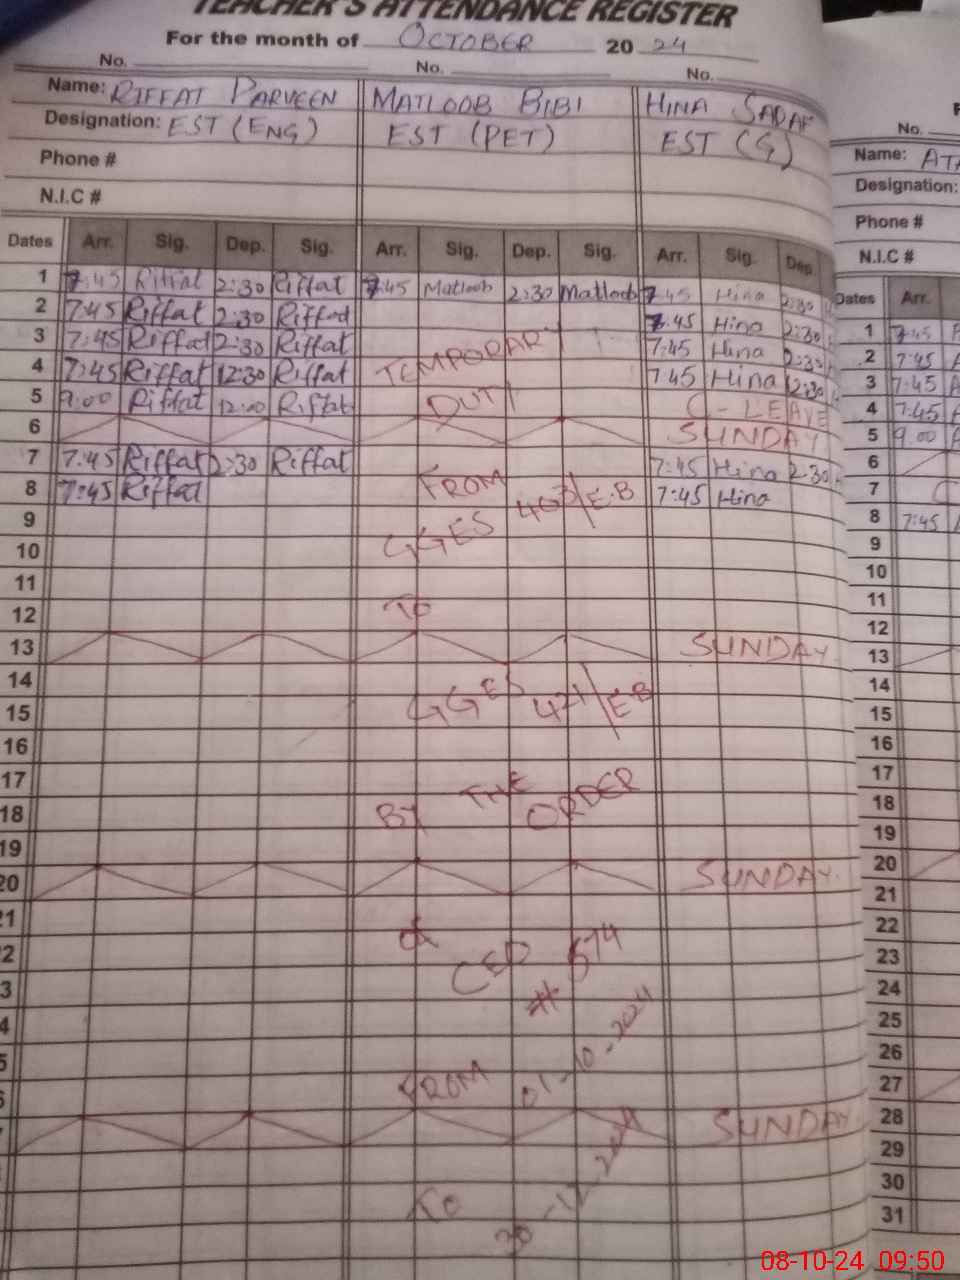 TEACHER'S ATTENDANCE REGISTER
For the month of OCTOBER 2024
No. No. No.
Name: RIFFAT PARVEEN MATLOOB BIBI HINA SADAF
Designation: EST (ENG) EST (PET) EST (G)
Phone #
N.I.C #
Dates Arr. Sig. Dep. Sig. Arr. Sig. Dep. Sig. Arr. Sig. Dep.
1 7:45 Riffat 2:30 Riffat 7:45 Matloob 2:30 Matloob 7:45 Hina 2:30
2 7:45 Riffat 2:30 Riffat 7:45 Hina 2:30
3 7:45 Riffat 2:30 Riffat TEMPORARY 7:45 Hina 2:30
4 7:45 Riffat 12:30 Riffat 7:45 Hina 12:30
5 9:00 Riffat 12:00 Riffat DUTY C-LEAVE
6 SUNDAY
7 7:45 Riffat 2:30 Riffat FROM 7:45 Hina 2:30
8 7:45 Riffat 463/E-B 7:45 Hina
9 GGES
10
11
12 TO
13 SUNDAY
14
15 GGES 421/E-B
16
17 THE
18 BY ORDER
19
20 SUNDAY
21
22 of
CEO # 574
FROM 01-10-2024
SUNDAY
To
30-12-2024
No.
Name:
Designation:
Phone #
N.I.C #
Dates Arr.
1 7:45
2 7:45
3 7:45
4 7:45
5 9:00
6
7
8 7:45
9
10
11
12
13
14
15
16
17
18
19
20
21
22
23
24
25
26
27
28
29
30
31
08-10-24 09:50